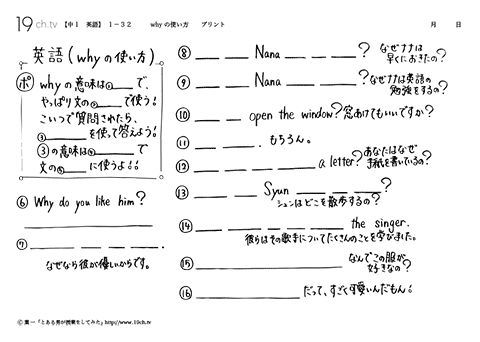 19ch.tv 【中1 英語】 1-32 whyの使い方 プリント 月 日
英語(whyの使い方)
ポ whyの意味は①___で、
やっぱり文の②___で使う!
こいつで質問されたら、
③___を使って答えよう!
③の意味は④___で
文の⑤___に使うよ!!
⑥ Why do you like him?
⑦ ___ ___ ___ ___ ___.
なぜなら彼が優しいからです。
⑧ ___ ___ Nana ___ ___? なぜナナは早くにおきたの?
⑨ ___ ___ Nana ___ ___? なぜナナは英語の勉強をするの?
⑩ ___ ___ open the window? 窓あけてもいいですか?
⑪ ___ ___. もちろん。
⑫ ___ ___ ___ ___ a letter? あなたはなぜ手紙を書いているの?
⑬ ___ ___ Syun ___ ___ ___?
シュンはどこを散歩するの?
⑭ ___ ___ ___ ___ ___ the singer.
彼らはその歌手についてたくさんのことを学びました。
⑮ ___ なんでこの服が好きなの?
⑯ ___ だって、すごく可愛いんだもん!
© 葉一「とある男が授業をしてみた」http://www.19ch.tv